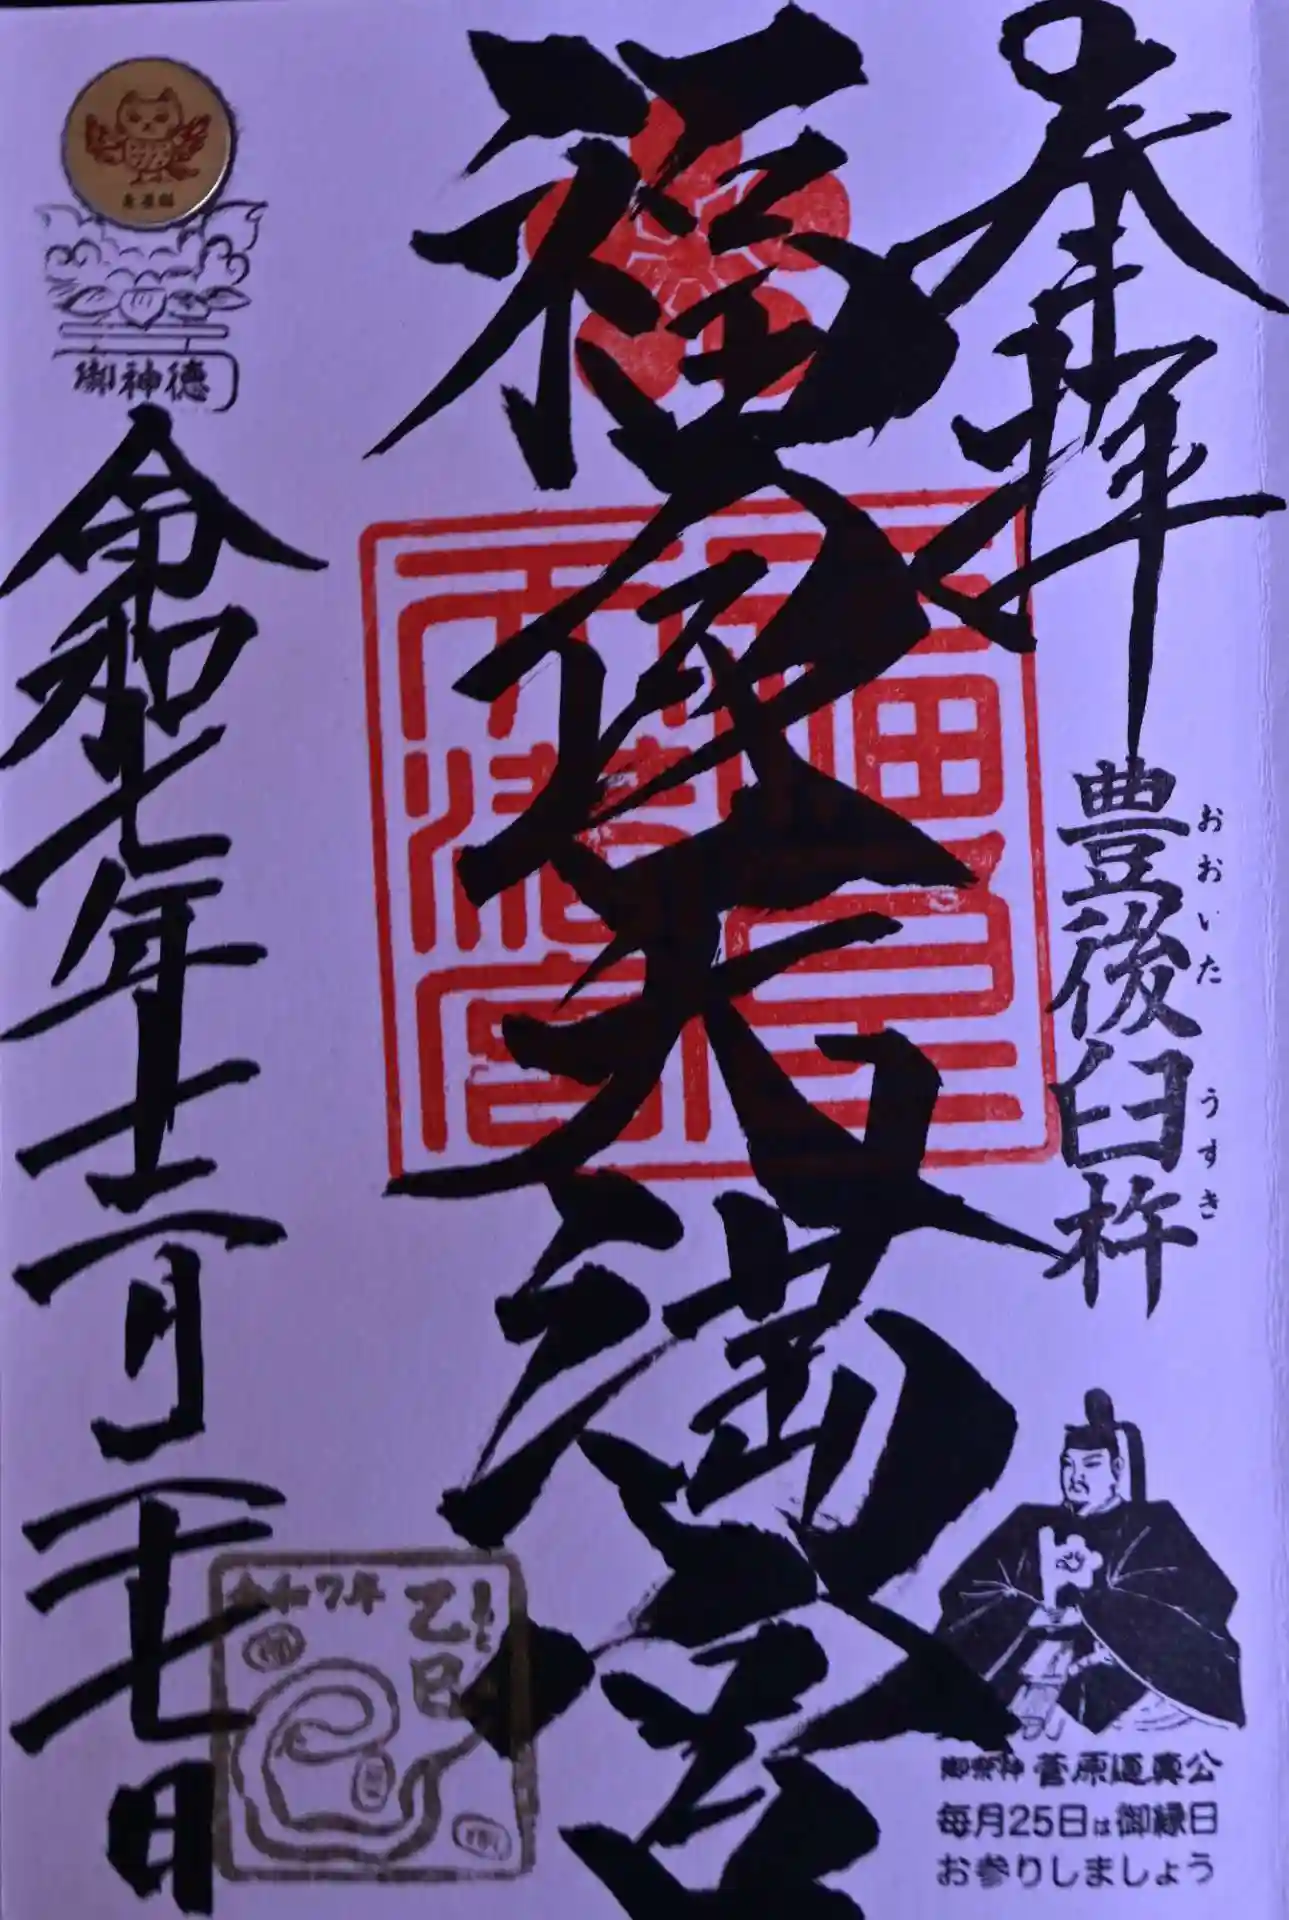 奉拝
豊後臼杵
おおいた
うすき
福良天満宮
福良天満宮
御祭神 菅原道真公
毎月25日は御縁日
お参りしましょう
御神徳
令和七年十二月二十七日
令和7年
乙巳